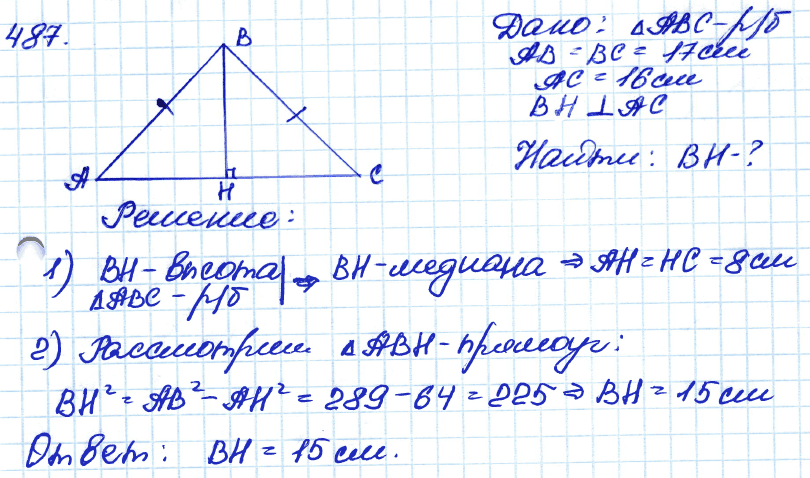 487.
B
A
H
C
Дано: △ABC - р/б
AB = BC = 17 см
AC = 16 см
BH ⊥ AC
Найти: BH - ?
Решение:
1) BH - высота | ⇒ BH - медиана ⇒ AH = HC = 8 см
△ABC - р/б
2) Рассмотрим △ABH - прямоуг:
BH² = AB² - AH² = 289 - 64 = 225 ⇒ BH = 15 см
Ответ: BH = 15 см.